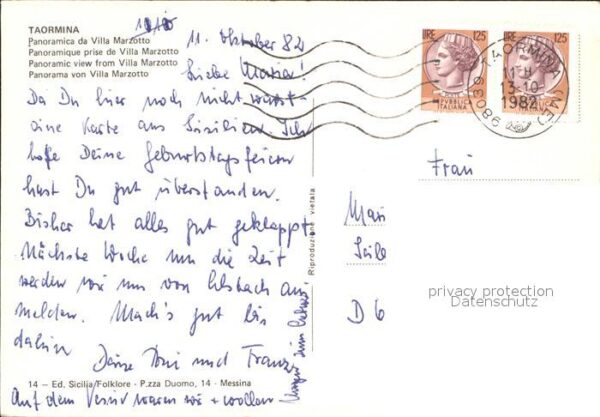 TAORMINA
Panoramica da Villa Marzotto
Panoramique prise de Villa Marzotto
Panoramic view from Villa Marzotto
Panorama von Villa Marzotto
11. Oktober 82
Liebe Maria!
Da Du hier noch nicht warst
eine Karte aus Sizilien. Ich
hoffe Deine Geburtstagsfeiern
hast Du gut überstanden.
Bisher hat alles gut geklappt.
Nächste Woche um die Zeit
werden wir uns von
melden. Mach's gut bis
dahin
Deine Toni und Franz
14 – Ed. Sicilia Folklore - P.zza Duomo, 14 - Messina
Auf dem Vesuv waren wir + wollen
Riproduzione vietata
LIRE 125
REPUBBLICA
ITALIANA
LIRE 125
ITALIANA
98039 TAORMINA (ME)
11-H
13-10
1982
Frau
D 6
privacy protection
Datenschutz